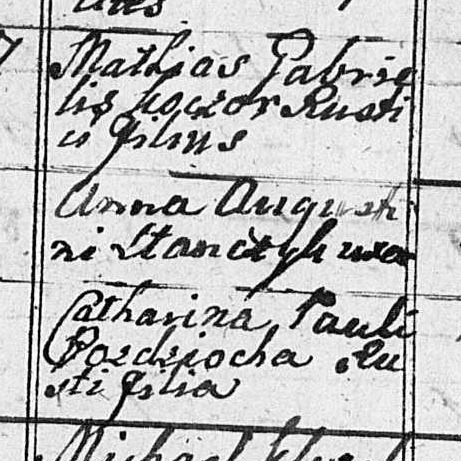 Mathias Gabrie
lis Koczor Rusti
ci filius
Anna Augusti
ni Stanczyk uxor
Catharina Pauli
Pozdziocha Ru
sti filia
Michael